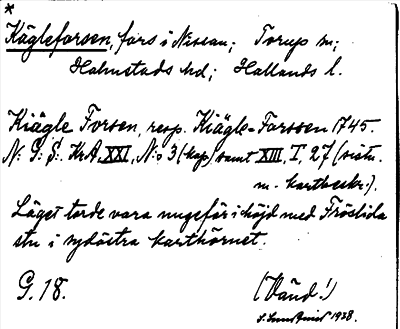 *
Kägleforsen, fors i Nissan; Torup sn;
Halmstads hd; Hallands l.
Kiägle Forsen, resp. Kiägle-Forssen 1745.
N: G: S:. KrA, XXI, N:o 3 (kop) samt XIII, I, 27 (sistn.
m. kartbeskr.).
Läget torde vara ungefär i höjd med Fröslida
stn i sydöstra karthörnet.
G. 18.
(Vänd!)
1938.